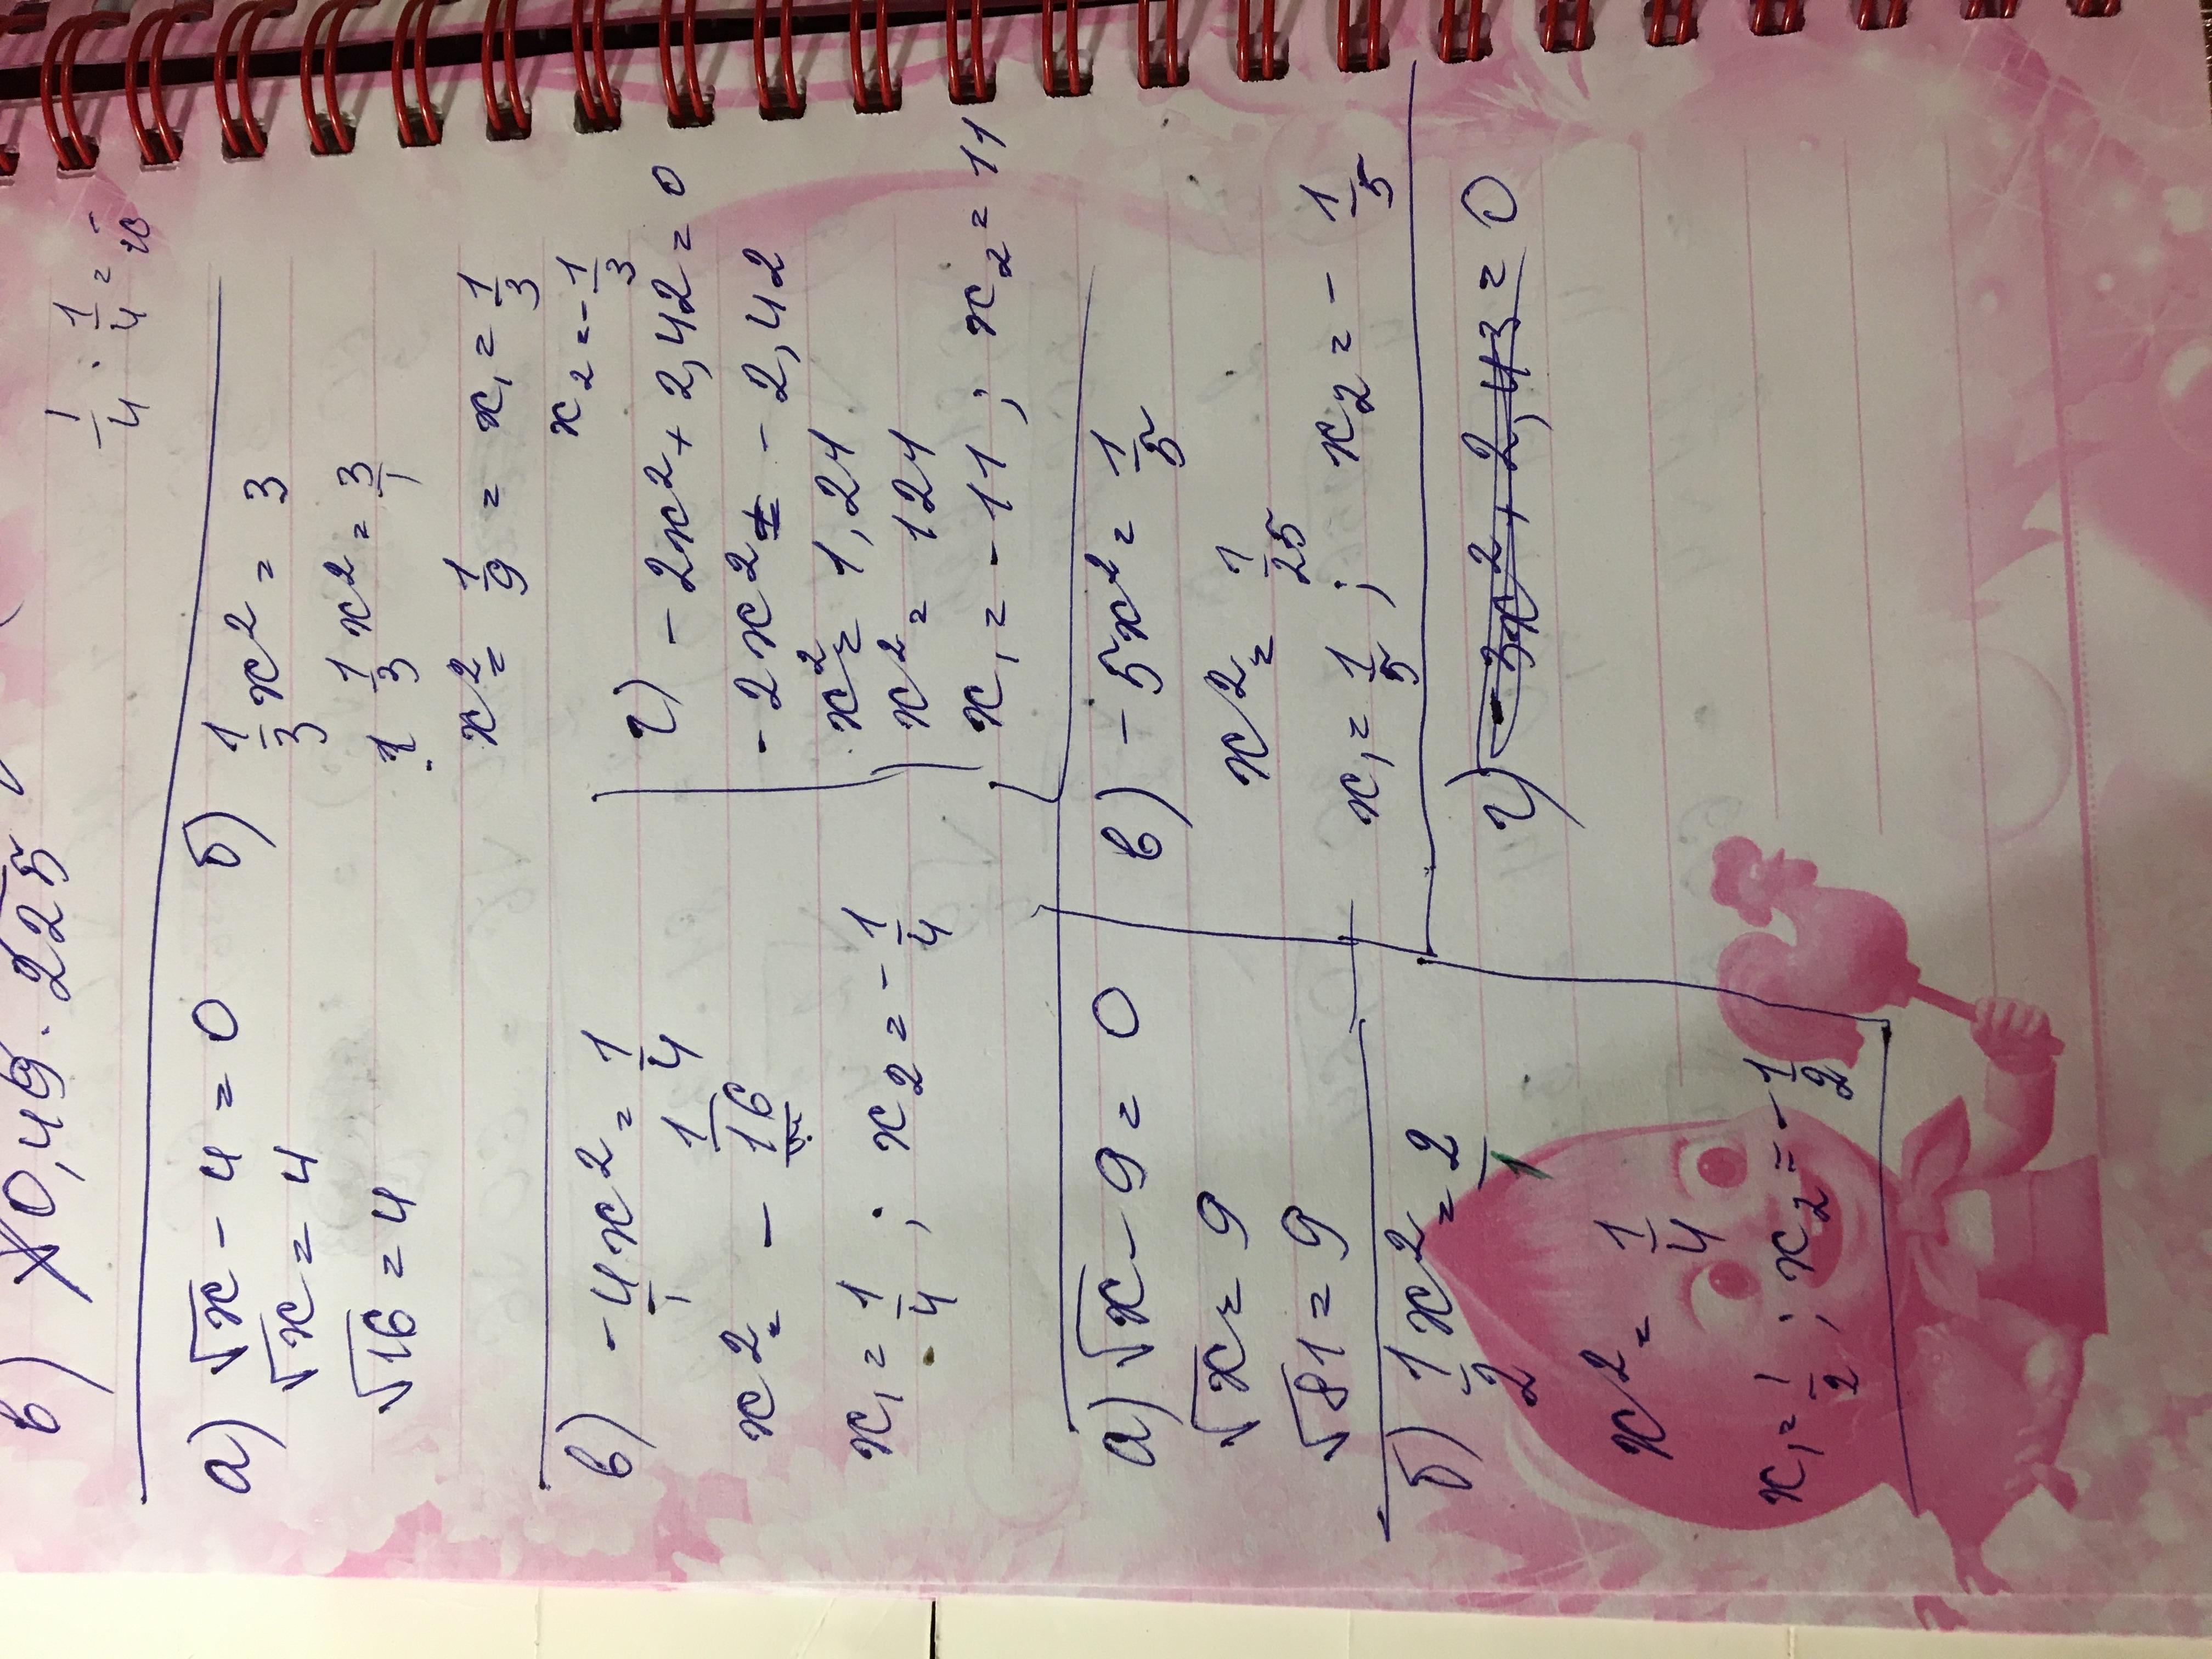 в) 0,49 · 225
1/4 · 1/4 =
а) √x - 4 = 0
√x = 4
√16 = 4
б) 1/3 x² = 3
1/3 x² = 3/1
x² = 1/9 = x₁ = 1/3
x₂ = - 1/3
в) -4x² = 1/4
x² = - 1/16
x₁ = 1/4 ; x₂ = - 1/4
г) - 2x² + 2,42 = 0
- 2x² = - 2,42
x² = 1,21
x² = 121
x₁ = - 11 ; x₂ = 11
а) √x - 9 = 0
√x = 9
√81 = 9
б) 1/2 x² = 2/1
x² = 1/4
x₁ = 1/2 ; x₂ = - 1/2
в) - 5x² = 1/5
x² = 1/25
x₁ = 1/5 ; x₂ = - 1/5
г) - 3x² + 2,43 = 0